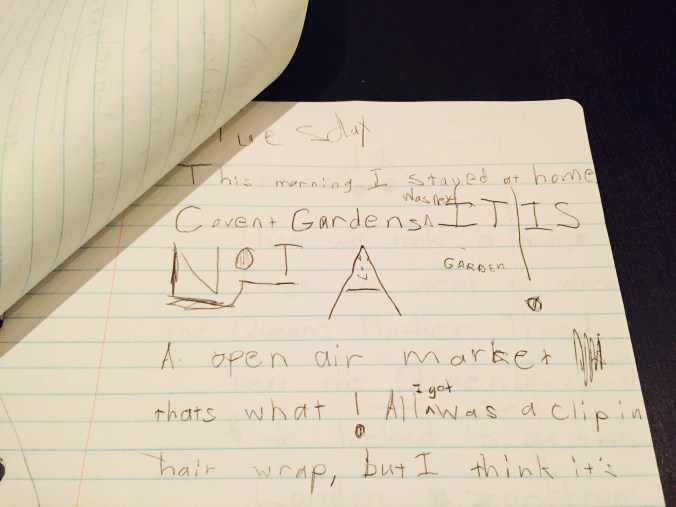 Tuesday
This morning I stayed at home
was next
Covent Gardens ^ IT IS
NOT A GARDEN !
A open air market
thats what ! All ^ I got was a clip in
hair wrap, but I think it's